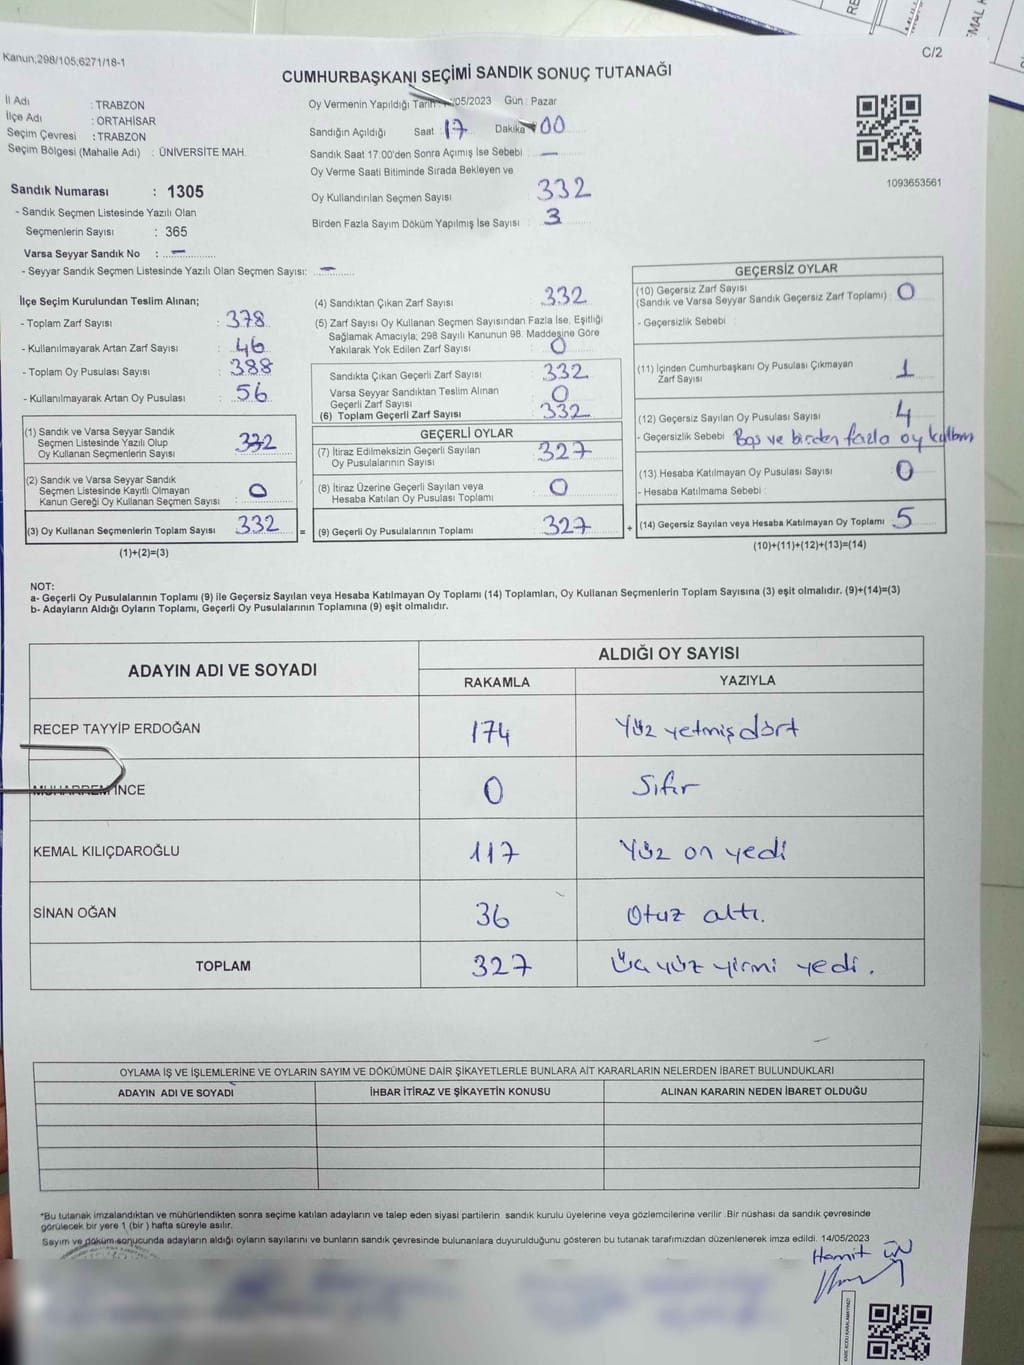 Kanun,298/105,6271/18-1
C/2
CUMHURBAŞKANI SEÇİMİ SANDIK SONUÇ TUTANAĞI
İl Adı : TRABZON
İlçe Adı : ORTAHİSAR
Seçim Çevresi : TRABZON
Seçim Bölgesi (Mahalle Adı) : ÜNİVERSİTE MAH.
Sandık Numarası : 1305
- Sandık Seçmen Listesinde Yazılı Olan
Seçmenlerin Sayısı : 365
Varsa Seyyar Sandık No : —
- Seyyar Sandık Seçmen Listesinde Yazılı Olan Seçmen Sayısı: —
Oy Vermenin Yapıldığı /05/2023 Gün : Pazar
Sandığın Açıldığı Saat : 17 Dakika : 00
Sandık Saat 17.00'den Sonra Açımış İse Sebebi : —
Oy Verme Saati Bitiminde Sırada Bekleyen ve
Oy Kullandırılan Seçmen Sayısı : 332
Birden Fazla Sayım Döküm Yapılmış İse Sayısı : 3
1093653561
İlçe Seçim Kurulundan Teslim Alınan;
- Toplam Zarf Sayısı : 378
- Kullanılmayarak Artan Zarf Sayısı : 46
- Toplam Oy Pusulası Sayısı : 388
- Kullanılmayarak Artan Oy Pusulası : 56
(1) Sandık ve Varsa Seyyar Sandık
Seçmen Listesinde Yazılı Olup
Oy Kullanan Seçmenlerin Sayısı : 332
(2) Sandık ve Varsa Seyyar Sandık
Seçmen Listesinde Kayıtlı Olmayan
Kanun Gereği Oy Kullanan Seçmen Sayısı : 0
(3) Oy Kullanan Seçmenlerin Toplam Sayısı : 332
(1)+(2)=(3)
=
(4) Sandıktan Çıkan Zarf Sayısı : 332
(5) Zarf Sayısı Oy Kullanan Seçmen Sayısından Fazla İse, Eşitliği
Sağlamak Amacıyla; 298 Sayılı Kanunun 98. Maddesine Göre
Yakılarak Yok Edilen Zarf Sayısı : 0
Sandıkta Çıkan Geçerli Zarf Sayısı : 332
Varsa Seyyar Sandıktan Teslim Alınan
Geçerli Zarf Sayısı : 0
(6) Toplam Geçerli Zarf Sayısı : 332
GEÇERLİ OYLAR
(7) İtiraz Edilmeksizin Geçerli Sayılan
Oy Pusulalarının Sayısı : 327
(8) İtiraz Üzerine Geçerli Sayılan veya
Hesaba Katılan Oy Pusulası Toplamı : 0
(9) Geçerli Oy Pusulalarının Toplamı : 327
+
GEÇERSİZ OYLAR
(10) Geçersiz Zarf Sayısı
(Sandık ve Varsa Seyyar Sandık Geçersiz Zarf Toplamı) : 0
- Geçersizlik Sebebi :
(11) İçinden Cumhurbaşkanı Oy Pusulası Çıkmayan
Zarf Sayısı : 1
(12) Geçersiz Sayılan Oy Pusulası Sayısı : 4
- Geçersizlik Sebebi : Boş ve birden fazla oy
(13) Hesaba Katılmayan Oy Pusulası Sayısı : 0
- Hesaba Katılmama Sebebi :
(14) Geçersiz Sayılan veya Hesaba Katılmayan Oy Toplamı : 5
(10)+(11)+(12)+(13)=(14)
NOT:
a- Geçerli Oy Pusulalarının Toplamı (9) ile Geçersiz Sayılan veya Hesaba Katılmayan Oy Toplamı (14) Toplamları, Oy Kullanan Seçmenlerin Toplam Sayısına (3) eşit olmalıdır. (9)+(14)=(3)
b- Adayların Aldığı Oyların Toplamı, Geçerli Oy Pusulalarının Toplamına (9) eşit olmalıdır.
ADAYIN ADI VE SOYADI
ALDIĞI OY SAYISI
RAKAMLA YAZIYLA
RECEP TAYYİP ERDOĞAN 174 Yüz yetmiş dört
MUHARREM İNCE 0 Sıfır
KEMAL KILIÇDAROĞLU 117 Yüz on yedi
SİNAN OĞAN 36 Otuz altı.
TOPLAM 327 Üç yüz yirmi yedi.
OYLAMA İŞ VE İŞLEMLERİNE VE OYLARIN SAYIM VE DÖKÜMÜNE DAİR ŞİKAYETLERLE BUNLARA AİT KARARLARIN NELERDEN İBARET BULUNDUKLARI
ADAYIN ADI VE SOYADI İHBAR İTİRAZ VE ŞİKAYETİN KONUSU ALINAN KARARIN NEDEN İBARET OLDUĞU
*Bu tutanak imzalandıktan ve mühürlendikten sonra seçime katılan adayların ve talep eden siyasi partilerin sandık kurulu üyelerine veya gözlemcilerine verilir. Bir nüshası da sandık çevresinde
görülecek bir yere 1 (bir) hafta süreyle asılır.
Sayım ve döküm sonucunda adayların aldığı oyların sayılarını ve bunların sandık çevresinde bulunanlara duyurulduğunu gösteren bu tutanak tarafımızdan düzenlenerek imza edildi. 14/05/2023
Hamit